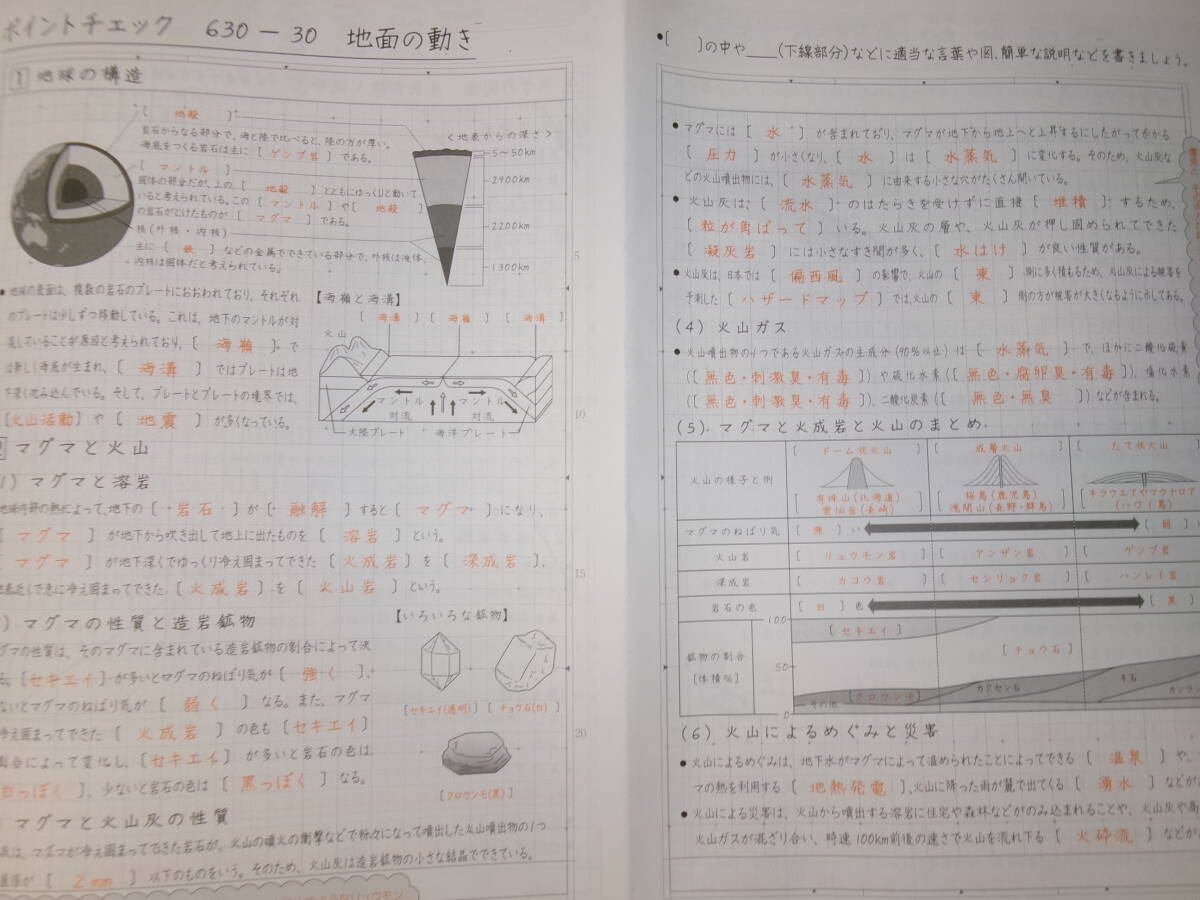 ポイントチェック 630－30 地面の動き
1 地球の構造
[ 地殻 ]
岩石からなる部分で、海と陸で比べると、陸の方が厚い。
海底をつくる岩石は主に [ ゲンブ岩 ] である。
[ マントル ]
固体の部分だが、上の [ 地殻 ] とともにゆっくりと動いて
いると考えられている。この [ マントル ] や [ 地殻 ]
の岩石がとけたものが [ マグマ ] である。
核(外核・内核)
主に [ 鉄 ] などの金属でできている部分で、外核は液体、
内核は固体だと考えられている。
<地表からの深さ>
5～50km
2900km
2200km
1300km
● 地球の表面は、複数の岩石のプレートにおおわれており、それぞれ
のプレートは少しずつ移動している。これは、地下のマントルが対
流していることが原因と考えられており、[ 海嶺 ] で
は新しく海底が生まれ、[ 海溝 ] ではプレートは地
下深く沈み込んでいる。そして、プレートとプレートの境界では、
[火山活動] や [ 地震 ] が多くなっている。
【海嶺と海溝】
[ 海溝 ] [ 海嶺 ] [ 海溝 ]
火山
マントル対流
マントル対流
大陸プレート
海洋プレート
5
10
15
20
マグマと火山
1) マグマと溶岩
地球内部の熱によって、地下の [ 岩石 ] が [ 融解 ] すると [ マグマ ] になり、
[ マグマ ] が地下から吹き出して地上に出たものを [ 溶岩 ] という。
マグマ ] が地下深くでゆっくり冷え固まってできた [ 火成岩 ] を [ 深成岩 ]、
地表近くで急に冷え固まってできた [ 火成岩 ] を [ 火山岩 ] という。
) マグマの性質と造岩鉱物
グマの性質は、そのマグマに含まれている造岩鉱物の割合によって決
る。[セキエイ] が多いとマグマのねばり気が [ 強く ]、
ないとマグマのねばり気が [ 弱く ] なる。また、マグマ
冷え固まってできた [ 火成岩 ] の色も [セキエイ]
割合によって変化し、[セキエイ] が多いと岩石の色は
白っぽく ]、少ないと岩石の色は [ 黒っぽく ] なる。
【いろいろな鉱物】
[セキエイ(透明)] [チョウ石(白)]
[クロウンモ(黒)]
マグマと火山灰の性質
灰は、マグマが冷え固まってできた岩石が、火山の噴火の衝撃などで粉々になって噴出した火山噴出物の1つ
直径が [ 2mm ] 以下のものをいう。そのため、火山灰は造岩鉱物の小さな結晶でできている。
●[ ]の中や＿＿(下線部分)などに適当な言葉や図、簡単な説明などを書きましょう。
● マグマには [ 水 ] が含まれており、マグマが地下から地上へと上昇するにしたがってかかる
[ 圧力 ] が小さくなり、[ 水 ] は [ 水蒸気 ] に変化する。そのため、火山灰な
どの火山噴出物には、[ 水蒸気 ] に由来する小さな穴がたくさん開いている。
● 火山灰は、[ 流水 ] のはたらきを受けずに直接 [ 堆積 ] するため、
[ 粒が角ばって ] いる。火山灰の層や、火山灰が押し固められてできた
[ 凝灰岩 ] には小さなすき間が多く、[ 水はけ ] が良い性質がある。
● 火山灰は、日本では [ 偏西風 ] の影響で、火山の [ 東 ] 側に多く積もるため、火山灰による被害を
予測した [ ハザードマップ ] では、火山の [ 東 ] 側の方が被害が大きくなるように示してある。
(4) 火山ガス
● 火山噴出物の1つである火山ガスの主成分(90%以上)は [ 水蒸気 ] で、ほかに二酸化硫黄
([ 無色・刺激臭・有毒 ])や硫化水素([ 無色・腐卵臭・有毒 ])、塩化水素
([ 無色・刺激臭・有毒 ])、二酸化炭素([ 無色・無臭 ])などが含まれる。
(5) マグマと火成岩と火山のまとめ
火山の様子と例
[ ドーム状火山
有珠山(北海道)
雲仙岳(長崎) ]
[ 成層火山
桜島(鹿児島)
浅間山(長野・群馬) ]
[ たて状火山
キラウエアやマウナロア
(ハワイ島)
マグマのねばり気 [ 強 ] い [ 弱
火山岩 [ リュウモン岩 ] [ アンザン岩 ] [ ゲンブ岩
深成岩 [ カコウ岩 ] [ センリョク岩 ] [ ハンレイ岩
岩石の色 [ 白 ] 色 [ 黒
鉱物の割合
[体積%]
100
50
0
[ セキエイ ]
[ チョウ石 ]
[クロウンモ]
その他
カクセン石
キ石
カンラン
(6) 火山によるめぐみと災害
● 火山によるめぐみは、地下水がマグマによって温められたことによってできる [ 温泉 ] や、
マの熱を利用する [ 地熱発電 ]、火山に降った雨が麓で出てくる [ 湧水 ] などが
● 火山による災害は、火山から噴出する溶岩に住宅や森林などがのみ込まれることや、火山灰や高
火山ガスが混ざり合い、時速100km前後の速さで火山を流れ下る [ 火砕流 ] などが